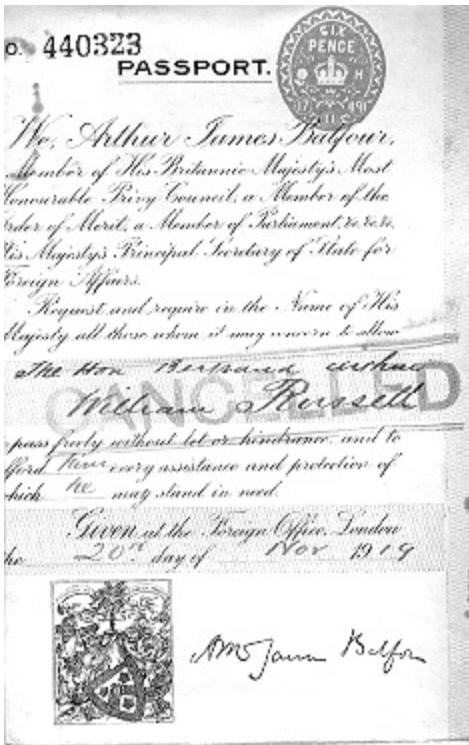 O. 440323
PASSPORT.
SIX
PENCE
We, Arthur James Balfour,
Member of His Britannic Majesty's Most
Honourable Privy Council, a Member of the
Order of Merit, a Member of Parliament, &c. &c. &c.
His Majesty's Principal Secretary of State for
Foreign Affairs.
Request and require in the Name of His
Majesty all those whom it may concern to allow
The Hon Bertrand Arthur
William Russell
CANCELLED
pass freely without let or hindrance, and to
afford him every assistance and protection of
which he may stand in need.
Given at the Foreign Office, London
the 20th day of Nov 1919
Arthur James Balfour